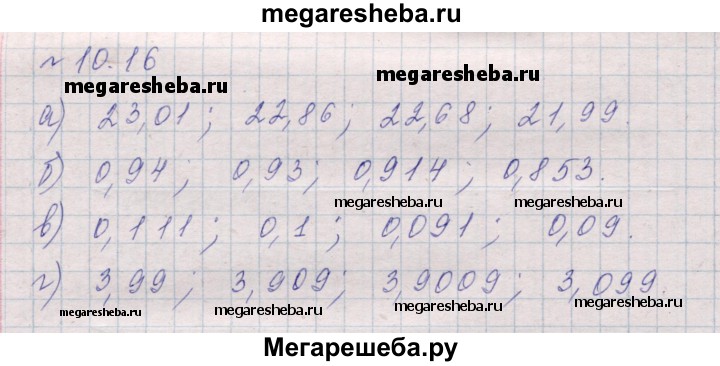 megaresheba.ru
№ 10.16
megaresheba.ru megaresheba.ru
а) 23,01; 22,86; 22,68; 21,99.
б) 0,94; 0,93; 0,914; 0,853.
megaresheba.ru megaresheba.ru
в) 0,111; 0,1; 0,091; 0,09.
г) 3,99; 3,909; 3,9009; 3,099.
megaresheba.ru megaresheba.ru megaresheba.ru megaresheba.ru
Мегарешеба.ру